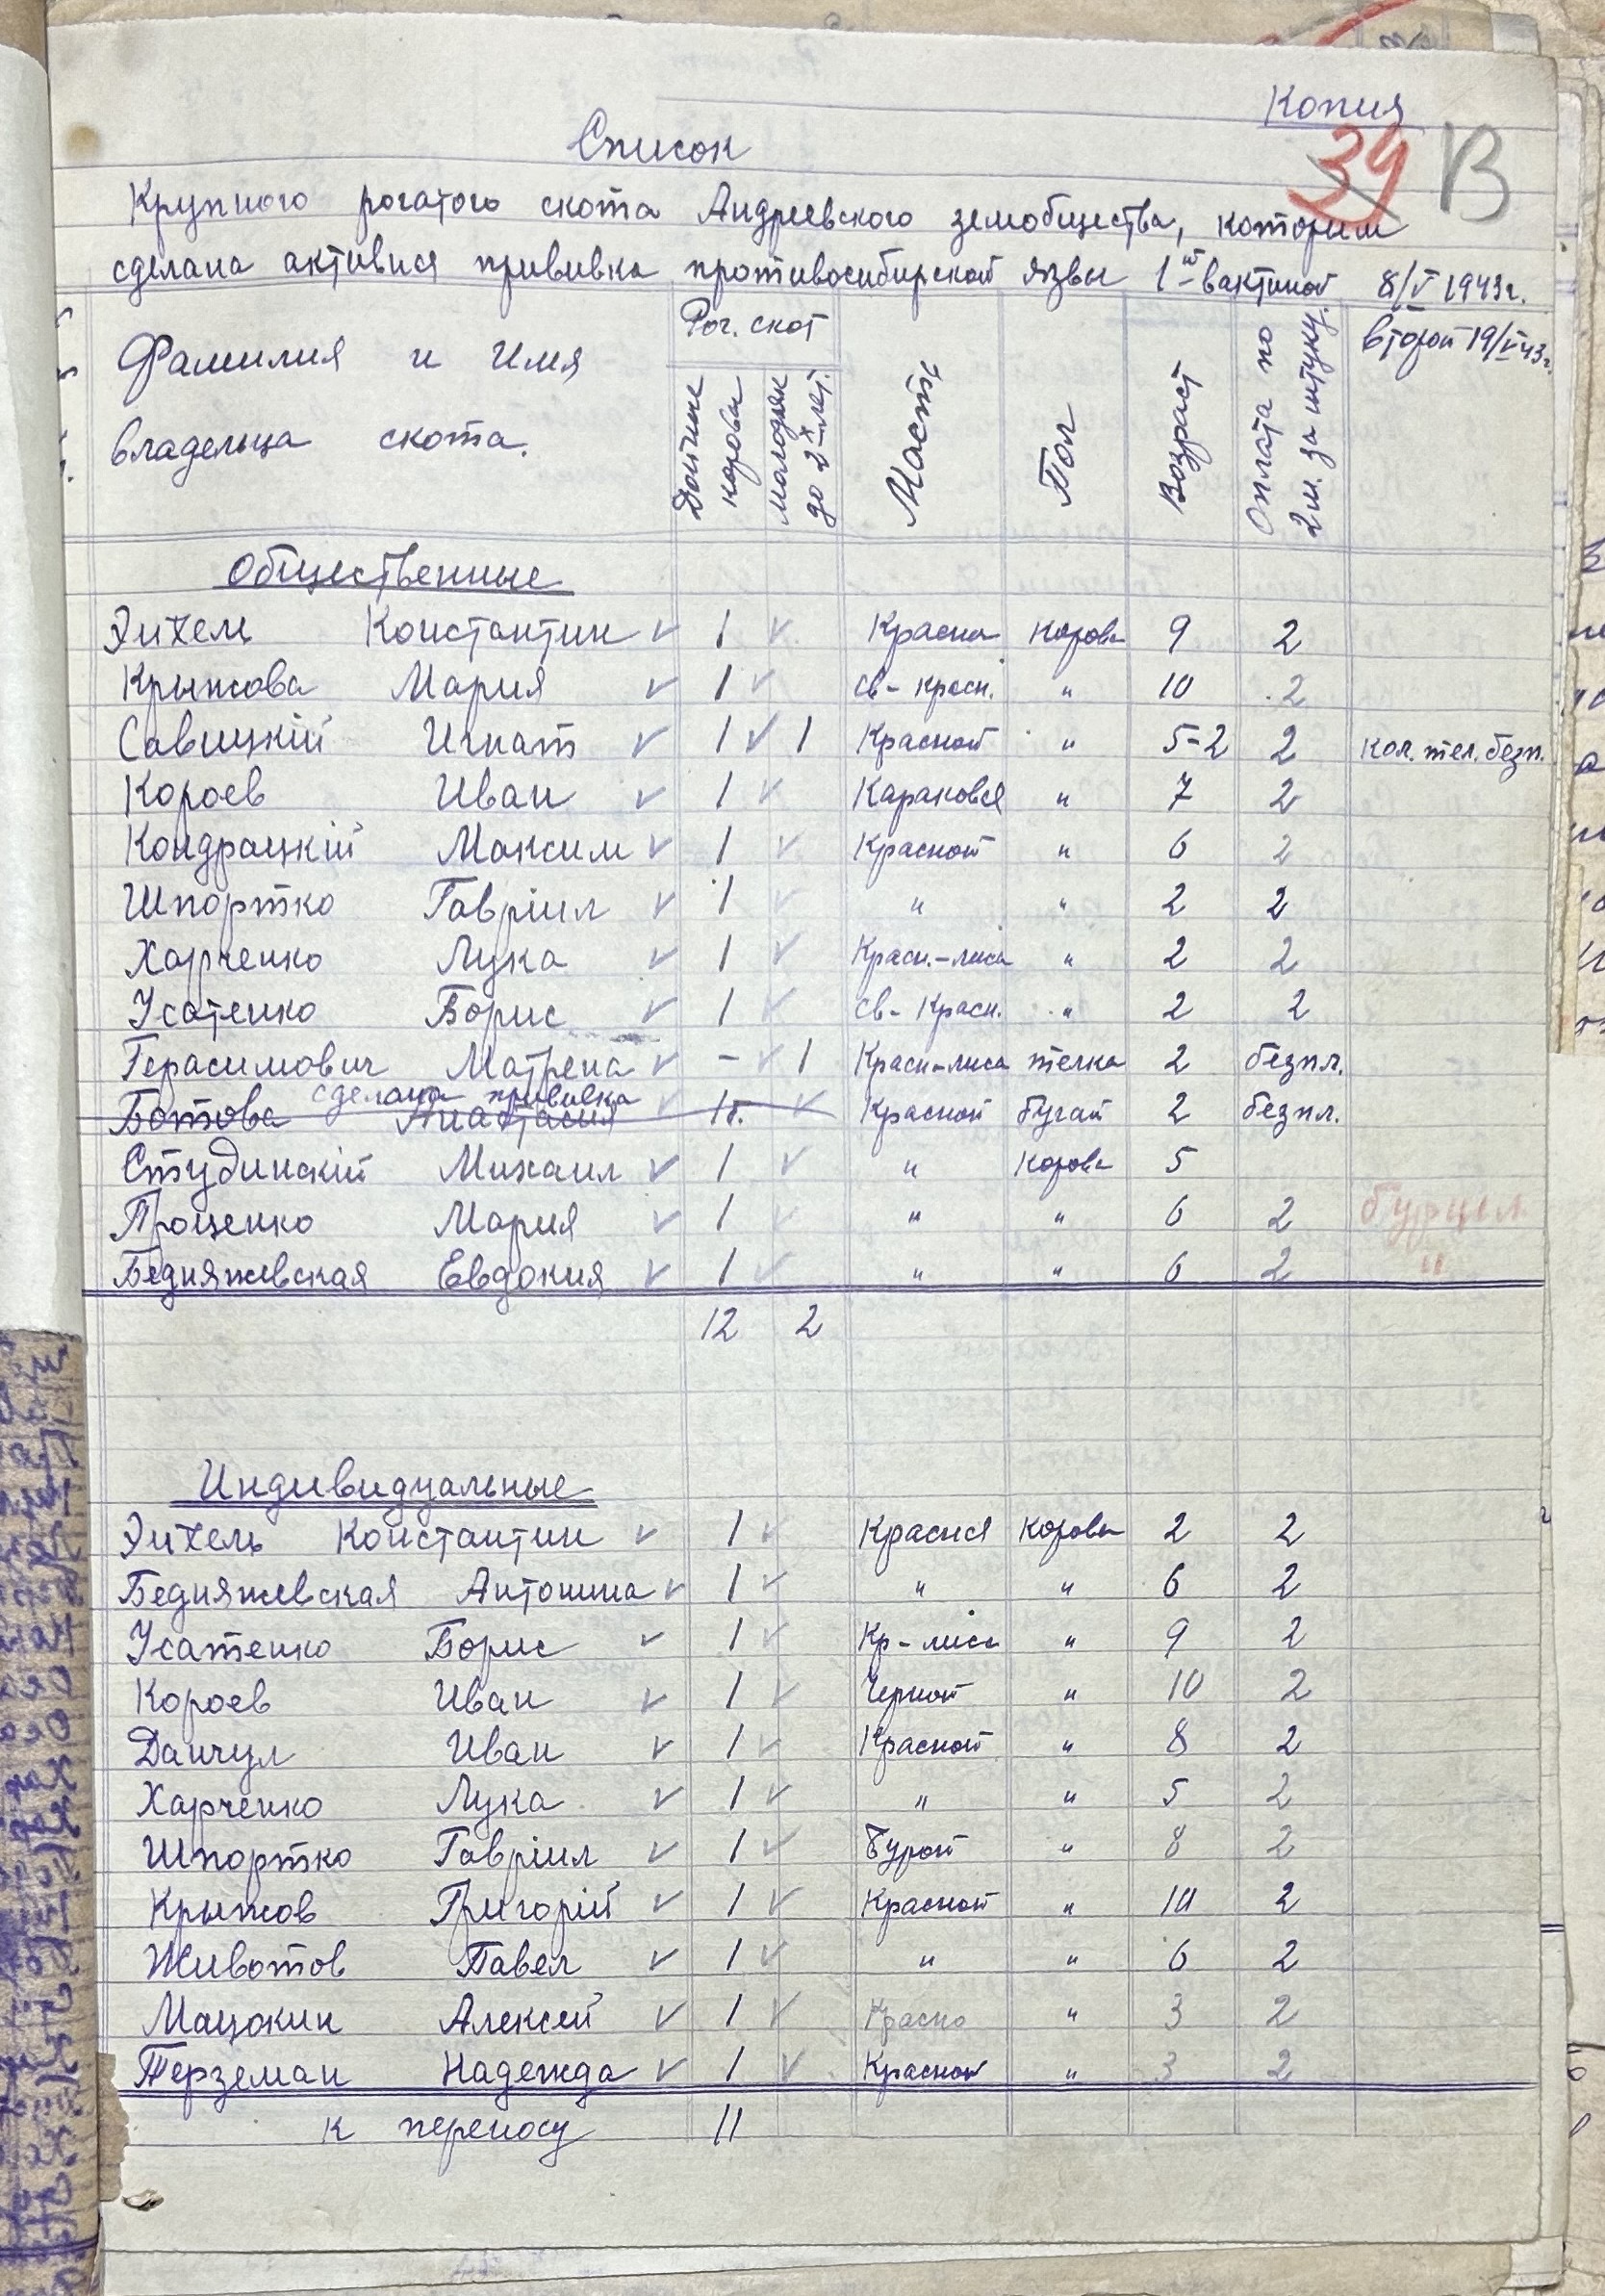 Копия
39 В
Список
Крупного рогатого скота Андреевского земобщества, которым
сделана активная прививка противосибирской язвы 1ой вакциной 8/V 1943г.
Фамилия и Имя владельца скота. Рог. скот Дойные коровы Молодняк до 2х лет. Масть Пол Возраст Оплата по 2 м. за штуку. второй 19/V 43г.
Общественные
Эйхель Константин ✓ 1 ✓ Красна Корова 9 2
Крыжова Мария ✓ 1 ✓ св-красн. " 10 2
Савицкій Игнат ✓ 1 ✓ 1 Красной " 5-2 2 кол. тел. безп.
Короев Иван ✓ 1 ✓ Караковая " 7 2
Кондрацкій Максим ✓ 1 ✓ Красной " 6 2
Шпортко Гавріил ✓ 1 ✓ " " 2 2
Харченко Лука ✓ 1 ✓ Красн.-лиса " 2 2
Усатенко Борис ✓ 1 ✓ св-Красн. " 2 2
Герасимович Матрена ✓ - ✓ 1 Красн-лиса телка 2 безпл.
сделана прививка
Ботова Анастасия ✓ 1б. ✓ Красной бугай 2 безпл.
Студинскій Михаил ✓ 1 ✓ " Корова 5
Проценко Мария ✓ 1 ✓ " " 6 2 бурцел.
Бедняжевская Евдокия ✓ 1 ✓ " " 6 2 "
12 2
Индивидуальные
Эйхель Константин ✓ 1 ✓ Красная Корова 2 2
Бедняжевская Антонина ✓ 1 ✓ " " 6 2
Усатенко Борис ✓ 1 ✓ Кр-лиса " 9 2
Короев Иван ✓ 1 ✓ Черной " 10 2
Данчул Иван ✓ 1 ✓ Красной " 8 2
Харченко Лука ✓ 1 ✓ " " 5 2
Шпортко Гавріил ✓ 1 ✓ Бурой " 8 2
Крыжов Григорій ✓ 1 ✓ Красной " 10 2
Животов Павел ✓ 1 ✓ " " 6 2
Мацокин Алексей ✓ 1 ✓ Красно " 3 2
Терземан Надежда ✓ 1 ✓ Красной " 3 2
к переносу 11